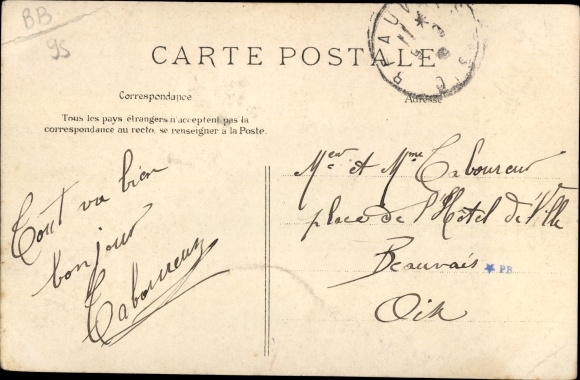 BB
95
BEAUVAIS
CARTE POSTALE
Correspondance
Tous les pays étrangers n'acceptent pas la
correspondance au recto, se renseigner à la Poste.
Tout va bien
bonjour
Taboureux
Adresse
Mr et Mme Taboureux
place de l'Hôtel de Ville
Beauvais
* PB
Oise